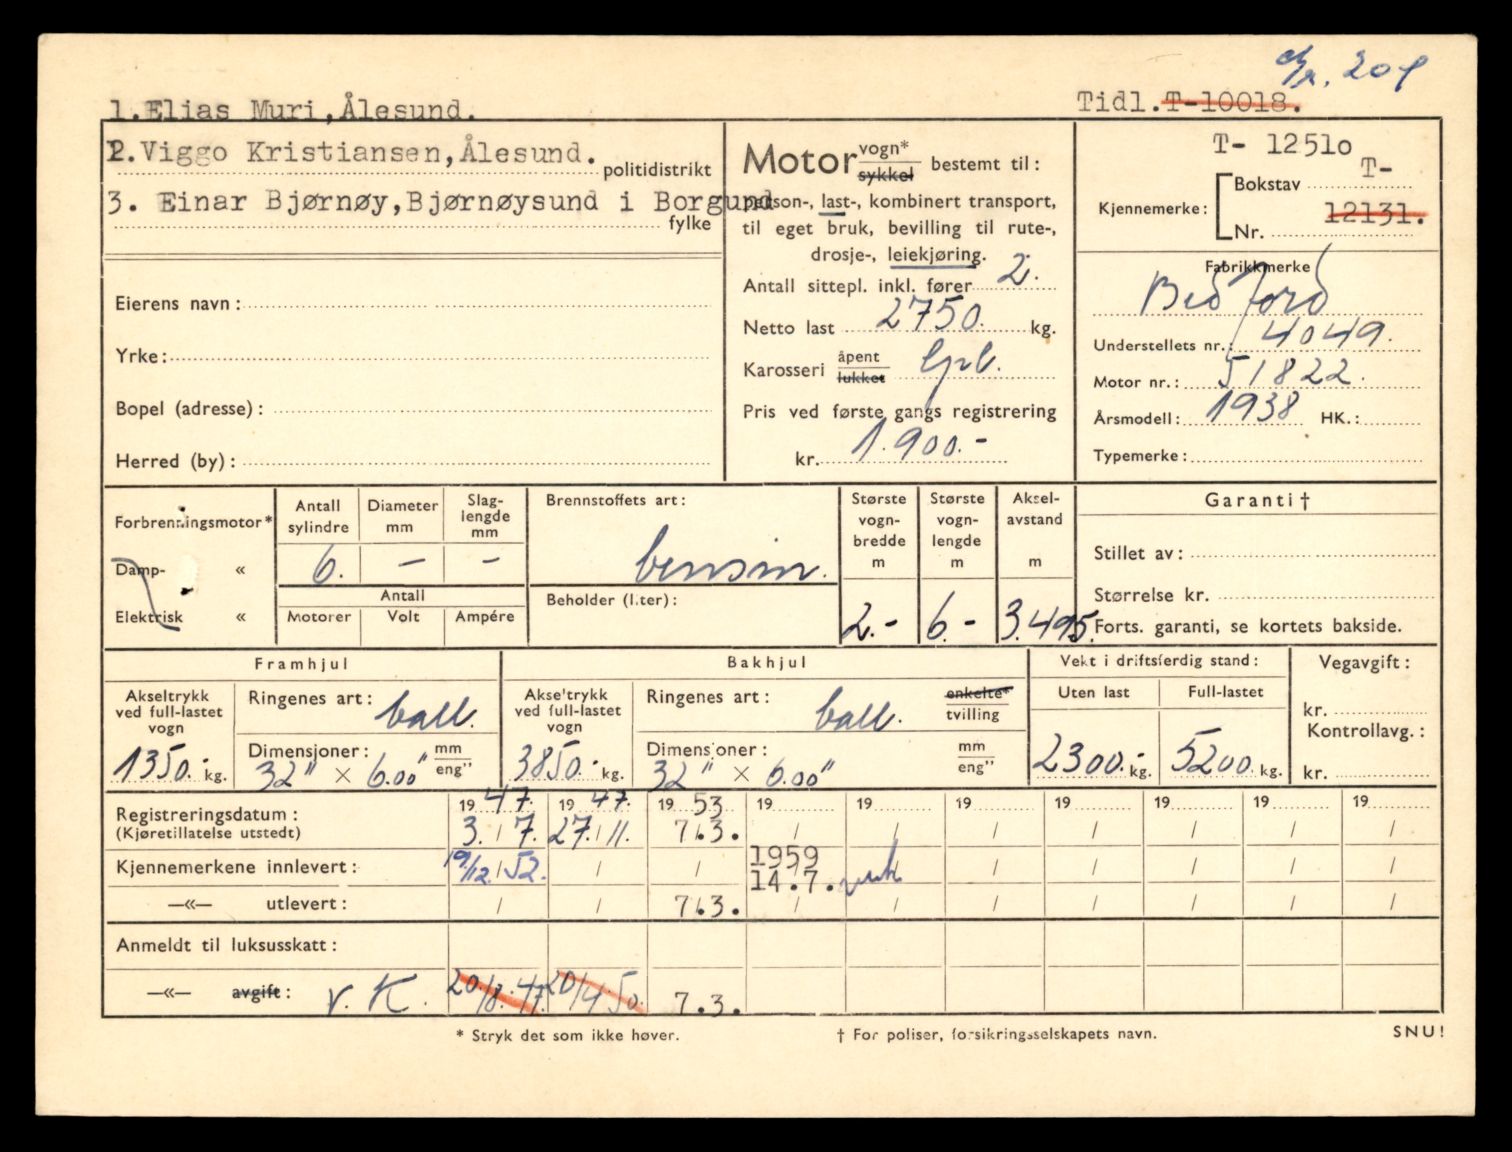 204
1. Elias Muri, Ålesund.
Tidl. T-10018.
2. Viggo Kristiansen, Ålesund.
politidistrikt
3. Einar Bjørnøy, Bjørnøysund i Borgund
fylke
Eierens navn:
Yrke:
Bopel (adresse):
Herred (by):
Motor vogn* sykkel bestemt til:
person-, last-, kombinert transport,
til eget bruk, bevilling til rute-,
drosje-, leiekjøring.
Antall sittepl. inkl. fører 2.
Netto last 2750. kg.
Karosseri åpent lukket
Pris ved første gangs registrering
kr. 1.900.-
T- 12510
Kjennemerke: Bokstav T-
Nr. 12131.
Fabrikkmerke
Bedford
Understellets nr.: 4049.
Motor nr.: 51822.
Årsmodell: 1938 HK.:
Typemerke:
Forbrenningsmotor*
Damp- «
Elektrisk «
Antall sylindre 6.
Diameter mm -
Slag-lengde mm -
Antall
Motorer Volt Ampére
Brennstoffets art:
bensin.
Beholder (liter):
Største vogn-bredde m 2.-
Største vogn-lengde m 6.-
Aksel-avstand m 3.495.
Garanti †
Stillet av:
Størrelse kr.
Forts. garanti, se kortets bakside.
Framhjul
Akseltrykk ved full-lastet vogn 1350.- kg.
Ringenes art: ball.
Dimensjoner: mm eng"
32" × 6.00"
Bakhjul
Akseltrykk ved full-lastet vogn 3850.- kg.
Ringenes art: ball. enkelte* tvilling
Dimensjoner: mm eng"
32" × 6.00"
Vekt i driftsferdig stand:
Uten last 2300.- kg.
Full-lastet 5200. kg.
Vegavgift:
kr.
Kontrollavg.:
kr.
Registreringsdatum: 1947. 1947. 1953 19 19 19 19 19 19 19
(Kjøretillatelse utstedt) 3. / 7. 27. / 11. 7.3. / / / / / / /
Kjennemerkene innlevert: 19/12. 52. / / 1959 14.7. / / / / / /
—«— utlevert: / / 7.3. / / / / / / /
Anmeldt til luksusskatt:
—«— avgift: V. K. 20/8. 47. 20/4 50. 7.3.
* Stryk det som ikke høver.
† For poliser, forsikringsselskapets navn.
SNU!